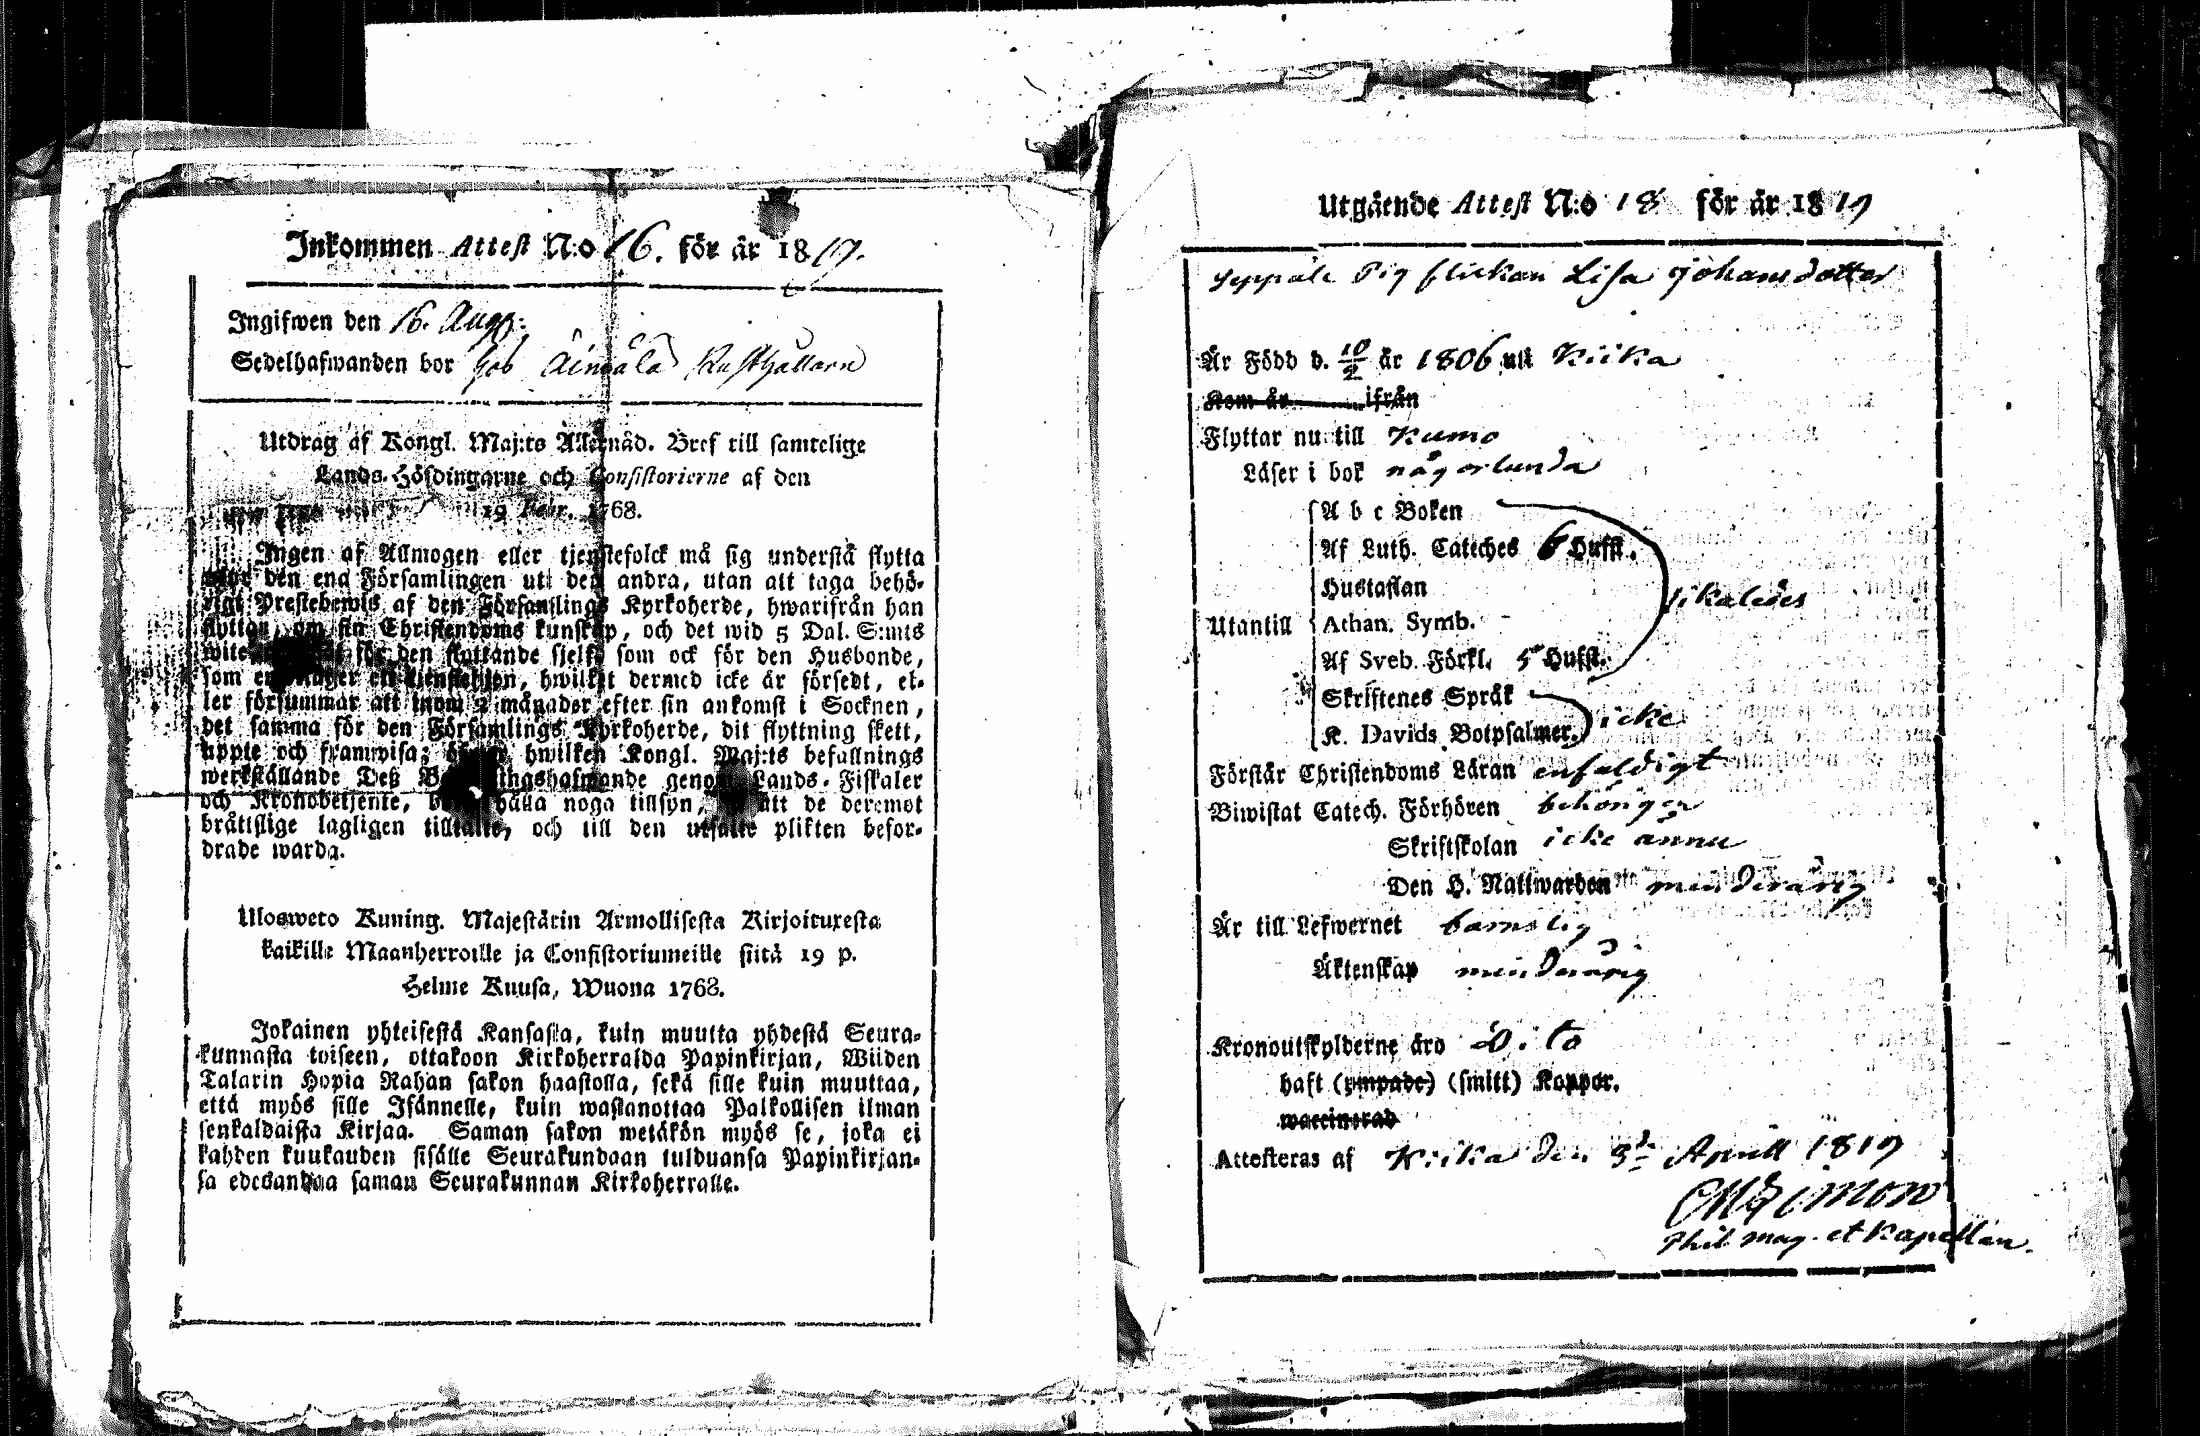 Inkommen Attest N:o 16. för år 1819.
Ingifwen den 16. Aug:
Sedelhafwanden bor hos Äimälä Rusthållarn
Utdrag af Kongl. Maj:ts Allernåd. Bref till samtelige
Lands-Höfdingarne och Consistorierne af den
19 Febr. 1768.
Ingen af Allmogen eller tjenstefolck må sig understå flytta
den ena Församlingen uti den andra, utan att taga behö-
rigt Prestebewis af den Församlings Kyrkoherde, hwarifrån han
flyttar, om sin Christendoms kunskap, och det wid 5 Dal. S:mts
wite för den flyttande sjelf, som ock för den Husbonde,
som en tjenstehjon, hwilket dermed icke är försedt, el-
ler försummar att inom 2 månader efter sin ankomst i Socknen,
det samma för den Församlings Kyrkoherde, dit flyttning skett,
uppte och framwisa; hwilken Kongl. Maj:ts befallnings
werkställande Deß genom Lands-Fiskaler
och Kronobetjente, hålla noga tillsyn, att de deremot
bråttslige lagligen tilltalte, och till den utsatte plikten befor-
drade warda.
Ulosweto Kuning. Majestätin Armollisesta Kirjoituxesta
kaikille Maanherroille ja Consistoriumeille siitä 19 p.
Helme Kuusa, Wuona 1768.
Jokainen yhteisestä Kansasta, kuin muutta yhdestä Seura-
kunnasta toiseen, ottakoon Kirkoherralda Papinkirjan, Wiiden
Talarin Hopia Rahan sakon haastolla, sekä sille kuin muuttaa,
että myös sille Isännelle, kuin wastanottaa Palkollisen ilman
senkaldaista Kirjaa. Saman sakon wetäkön myös se, joka ei
kahden kuukauden sisälle Seurakundaan tulduansa Papinkirjan-
sa edesandaa saman Seurakunnan Kirkoherralle.
Utgående Attest N:o 18 för år 1819
Seppälä Pig flickan Lisa Johansdotter
Är Född d. 10/2 år 1806 uti Kiika
Kom år ifrån
Flyttar nu till Kumo
Läser i bok någorlunda
Utantill
A b c Boken
Af Luth. Cateches 6 Hufst.
Hustaflan
Athan. Symb.
Af Sveb. Förkl. 5 Hufst.
likaledes
Skriftenes Språk
K. Davids Botpsalmer.
icke
Förstår Christendoms Läran enfaldigt
Biwistat Catech. Förhören behörigen
Skriftskolan icke ännu
Den H. Nattwarden minderårig
Är till Lefwernet barnslig
Äktenskap minderårig
Kronoutskylderne äro Dito
haft (ympade) (smitt) Koppor.
waccinerad
Attesteras af Kiika den 3d April 1819
Phil. mag. et Kapellan.